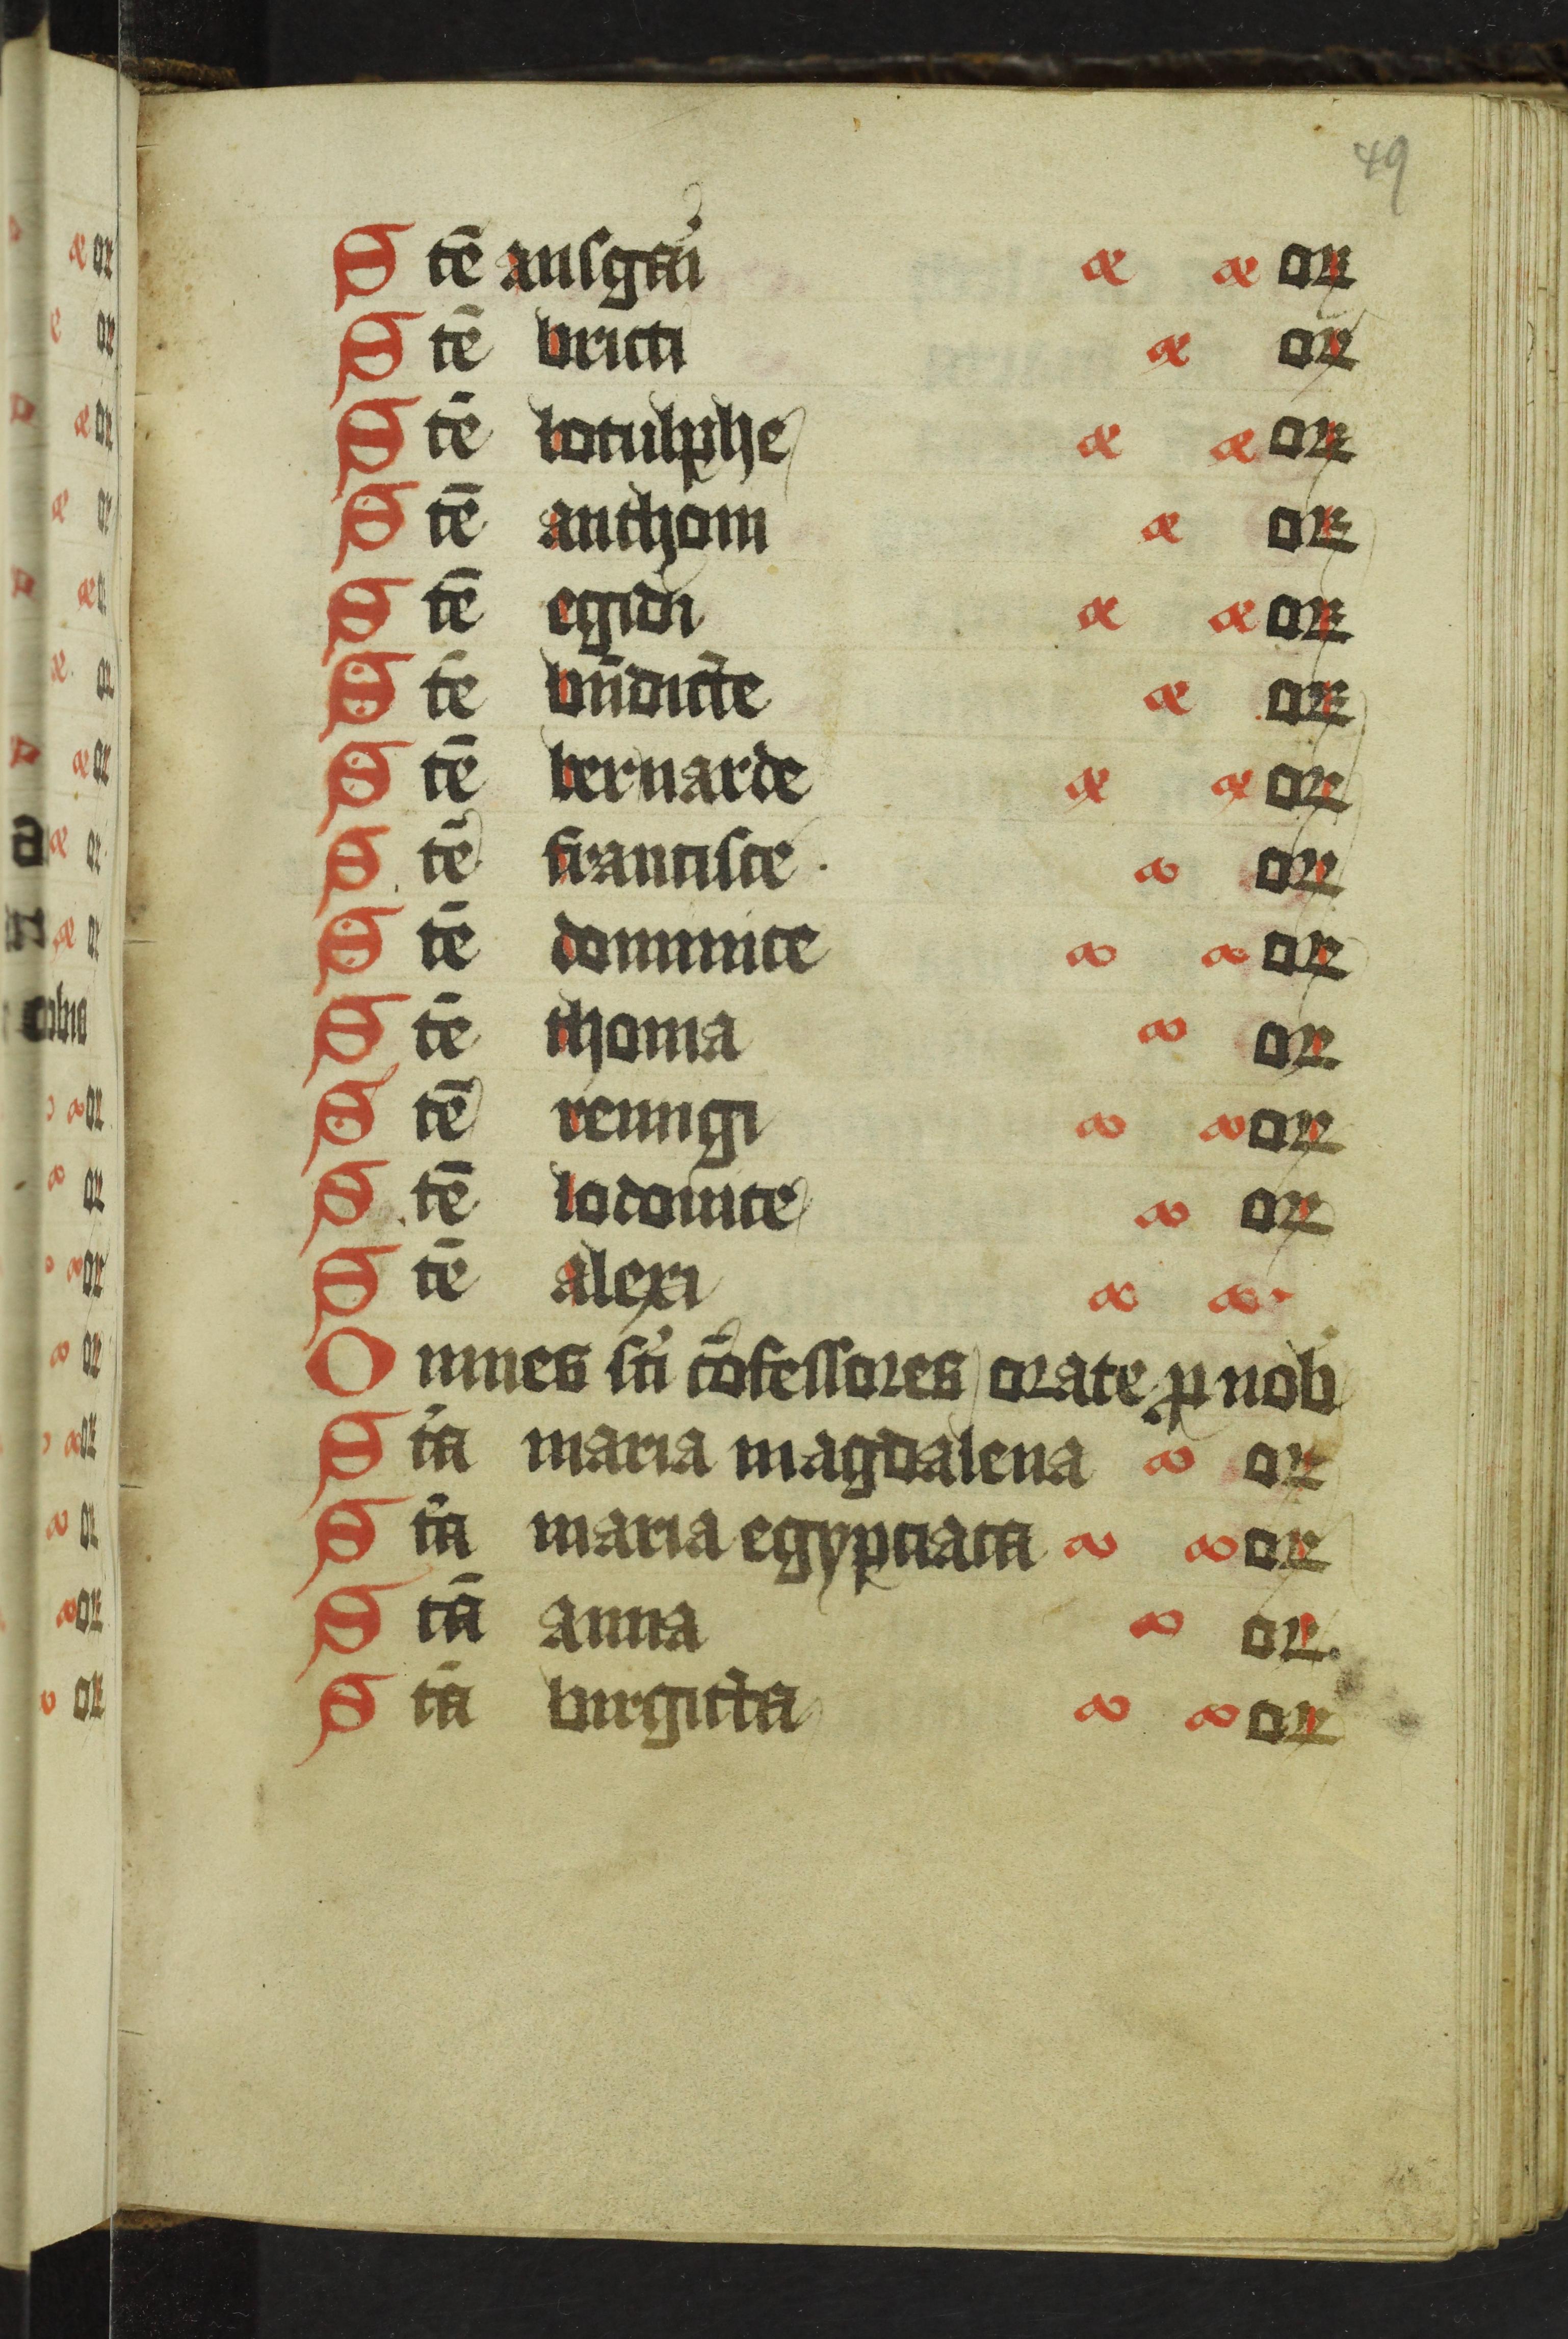 49
S tē ansgari or
S tē bricti or
S tē botulphe or
S tē anthoni or
S tē egidi or
S tē bn̄dicte or
S tē bernarde or
S tē francisce or
S tē dominice or
S tē thoma or
S tē remigi or
S tē lodouice or
S tē alexi
O mnes sti cōfessores orate p nob
S tā maria magdalena or
S tā maria egypciaca or
S tā anna or
S tā birgitta or